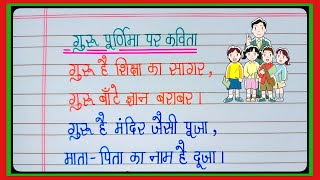 गुरु पूर्णिमा पर कविता
गुरू है शिक्षा का सागर,
गुरू बाँटे ज्ञान बराबर।
गुरू है मंदिर जैसी पूजा,
माता-पिता का नाम है दूजा।